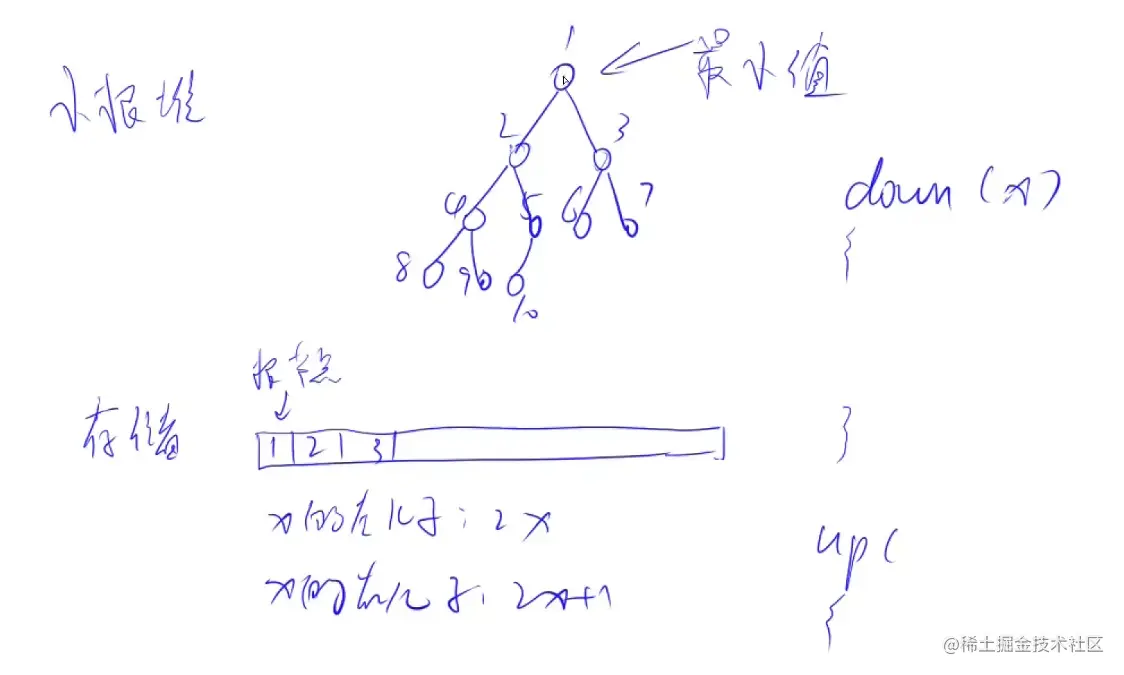 小根堆
最小值
1
2 3
4 5 6 7
8 9 10
down(x)
{
}
根节点
存储
1 2 3
x的左儿子:2x
x的右儿子:2x+1
up(
{
@稀土掘金技术社区